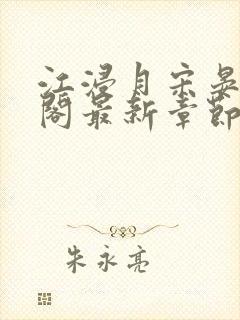 江浸月宋晏
阁最新章节
朱永亮